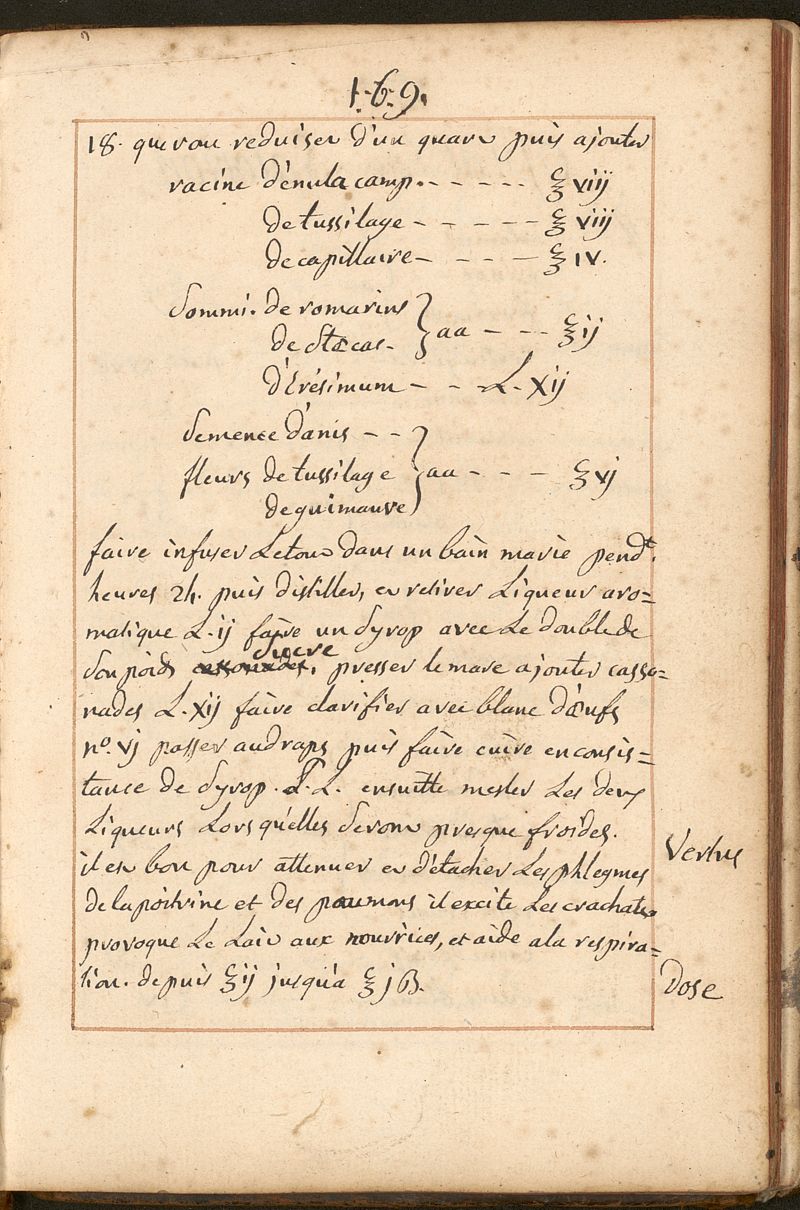 1.6.9.
18. que vou reduisez d'un quare puis ajouter
racine d'énula camp. - - - - - ℥ viij
de tussilage - - - - - ℥ viij
de capillaire - - - - ℥ iv.
Sommi. de romarins
de Stœcas -
} aa - - - ℥ ij
d'Erésimum - - L. Xij
Semence d'anis - -
fleurs de tussilage
de guimauve
} aa - - - ℥ vj
faire infuser Le tou dans un bain marie pendt.
heures 24. puis distiller, en retirer Liqueur aro=
matique L. ij faire un Syrop avec Le double de
Son poids Sucre. presser le marc ajouter casso=
nades L. Xij faire clarifier avec blanc d'œufs
no. vj passer au draps puis faire cuire en consis=
tance de Syrop. S. L. ensuitte mesler Les deux
Liqueurs Lors qu'elles seron presque froides.
il es bon pour attenuer en détacher Les phlegmes
de la poitrine et des poumons il excite Les crachats
provoque Le Lait aux nourrices, et aide a la respira=
tion. depuis ℥ ij jusqu'a ℥ j ß.
Vertus
Dose